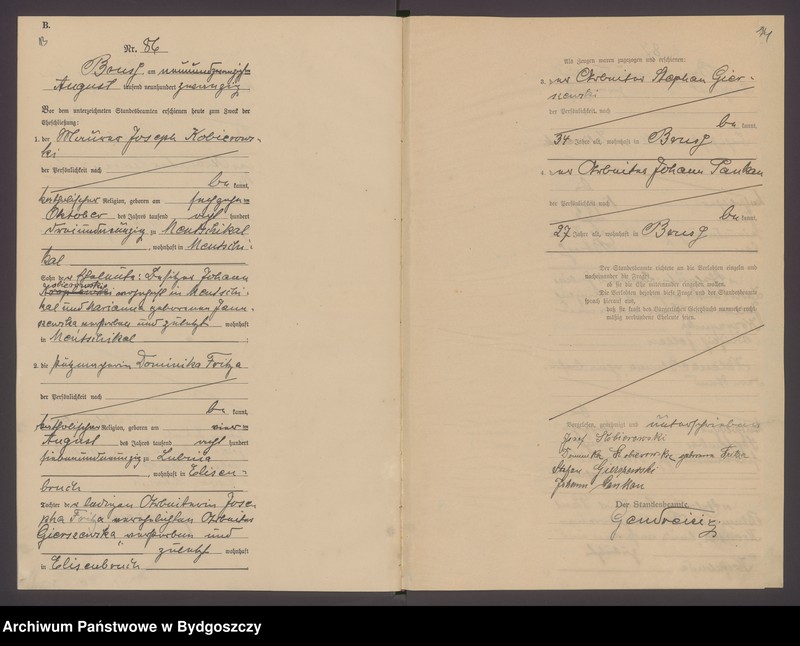 B.
Nr. 86
Brusy am neunundzwanzig=
August tausend neunhundert zwanzig
Vor dem unterzeichneten Standesbeamten erschienen heute zum Zweck der
Eheschließung:
1. der Maurer Joseph Kobierows-
ki
der Persönlichkeit nach
be kannt,
katholischer Religion, geboren am sechzehn=
Oktober des Jahres tausend acht hundert
dreiundneunzig zu Mentschikal
, wohnhaft in Mentschi-
kal
Sohn der Eheleute: Besitzer Johann
Kobierowski wohnhaft in Mentschi-
kal und Marianna geborenen Jann-
szewska verstorben und zuletzt wohnhaft
in Mentschikal
2. die Putzmacherin Dominika Fritza
der Persönlichkeit nach
be kannt,
katholischer Religion, geboren am vier=
August des Jahres tausend acht hundert
siebenundneunzig zu Lubnia
, wohnhaft in Elisen-
bruch
Tochter der ledigen Arbeiterin Jose-
pha Fritza verehelichten Arbeiter
Gierszewska, verstorben und
zuletzt wohnhaft
in Elisenbruch
Als Zeugen waren zugezogen und erschienen:
3. der Arbeiter Stephan Gier-
szewski
der Persönlichkeit nach
be kannt,
34 Jahre alt, wohnhaft in Brusy
4. der Arbeiter Johann Pankau
der Persönlichkeit nach
be kannt,
27 Jahre alt, wohnhaft in Brusy
Der Standesbeamte richtete an die Verlobten einzeln und
nacheinander die Frage:
ob sie die Ehe miteinander eingehen wollen.
Die Verlobten bejahten diese Frage und der Standesbeamte
sprach hierauf aus,
daß sie kraft des Bürgerlichen Gesetzbuchs nunmehr recht-
mäßig verbundene Eheleute seien.
Vorgelesen, genehmigt und unterschrieben
Józef Kobierowski
Dominika Kobierowska geborene Fritza
Stefan Gierszewski
Johann Pankau
Der Standesbeamte.
Archiwum Państwowe w Bydgoszczy